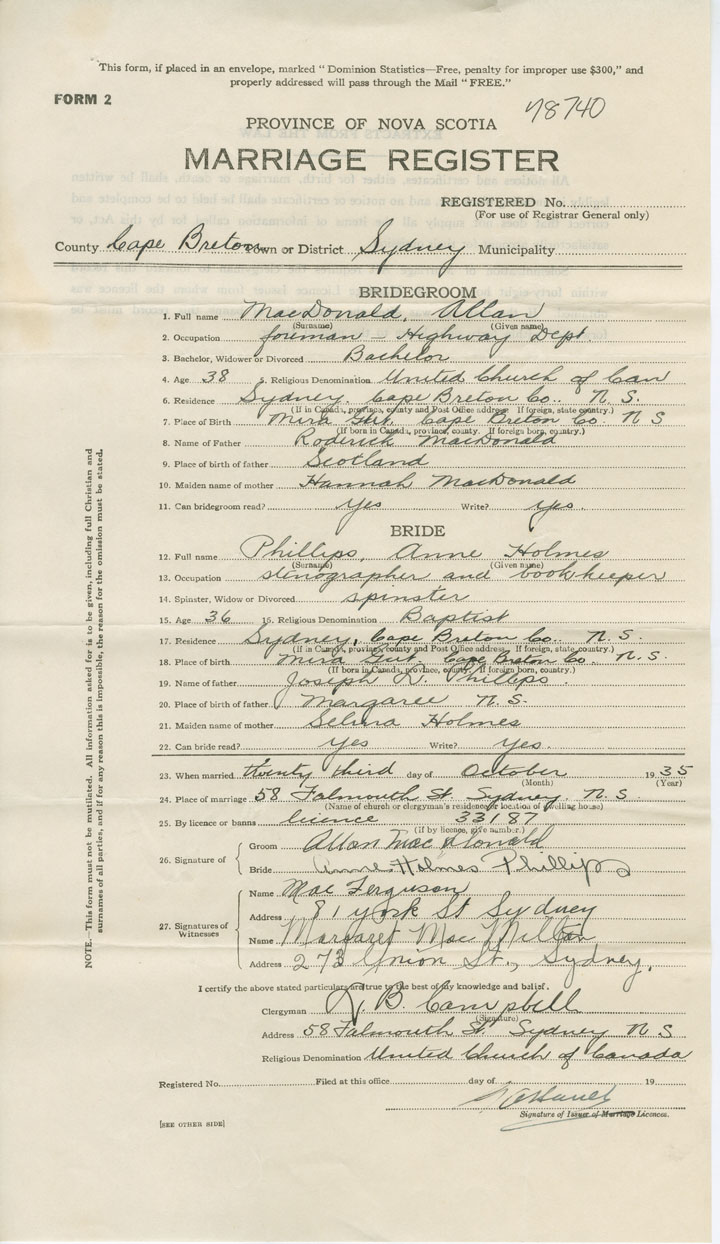 This form, if placed in an envelope, marked "Dominion Statistics—Free, penalty for improper use $300," and
properly addressed will pass through the Mail "FREE."
FORM 2
78740
PROVINCE OF NOVA SCOTIA
MARRIAGE REGISTER
REGISTERED No.
(For use of Registrar General only)
County Cape Breton Town or District Sydney Municipality
BRIDEGROOM
1. Full name MacDonald, Allan
(Surname) (Given name)
2. Occupation foreman - Highway Dept.
3. Bachelor, Widower or Divorced Bachelor
4. Age 38 5. Religious Denomination United Church of Can
6. Residence Sydney, Cape Breton Co. N. S.
(If in Canada, province, county and Post Office address If foreign, state country.)
7. Place of Birth Mira Gut, Cape Breton Co. N S
(If born in Canada, province, county. If foreign born, country.)
8. Name of Father Roderick MacDonald
9. Place of birth of father Scotland
10. Maiden name of mother Hannah MacDonald
11. Can bridegroom read? yes Write? yes.
BRIDE
12. Full name Phillips, Anne Holmes
(Surname) (Given name)
13. Occupation stenographer and bookkeeper
14. Spinster, Widow or Divorced spinster
15. Age 36 15. Religious Denomination Baptist
17. Residence Sydney, Cape Breton Co. N. S.
(If in Canada, province, county and Post Office address If foreign, state country.)
18. Place of birth Mira Gut, Cape Breton Co. N. S.
(If born in Canada, province, county, If foreign born, country.)
19. Name of father Joseph D. Phillips.
20. Place of birth of father Margaree N. S.
21. Maiden name of mother Selina Holmes
22. Can bride read? yes Write? yes.
23. When married twenty third day of October 19 35
(Month) (Year)
24. Place of marriage 58 Falmouth St. Sydney. N. S
(Name of church or clergyman's residence or location of dwelling house)
25. By licence or banns licence 33187
(If by licence, give number.)
26. Signature of
Groom Allan MacDonald
Bride Anne Holmes Phillips
27. Signatures of Witnesses
Name Mae Ferguson
Address 81 York St Sydney
Name Margaret MacMillan
Address 273 Union St., Sydney.
I certify the above stated particulars are true to the best of my knowledge and belief.
Clergyman B. Campbell
(Signature)
Address 58 Falmouth St Sydney N S
Religious Denomination United Church of Canada
Registered No. Filed at this office day of 19
Signature of Issuer of Marriage Licences.
[SEE OTHER SIDE]
NOTE.—This form must not be mutilated. All information asked for is to be given, including full Christian and
surnames of all parties, and if for any reason this is impossible, the reason for the omission must be stated.